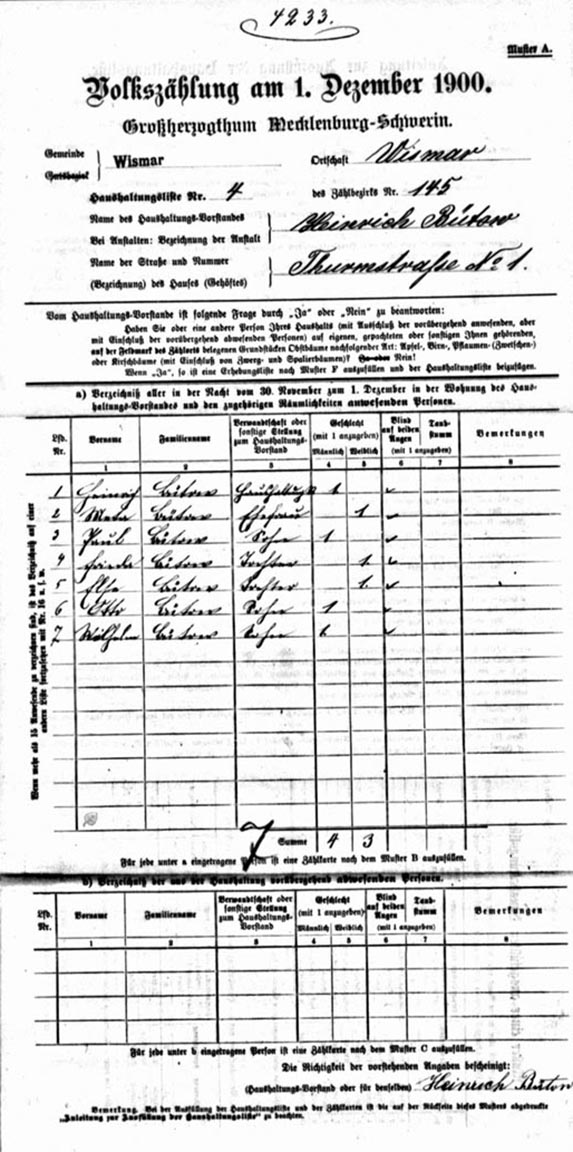 4233.
Muster A.
Volkszählung am 1. Dezember 1900.
Großherzogthum Mecklenburg-Schwerin.
Gemeinde Wismar Ortschaft Wismar
Gutsbezirk
Haushaltungsliste Nr. 4 des Zählbezirks Nr. 145
Name des Haushaltungs-Vorstandes Heinrich Bütow
Bei Anstalten: Bezeichnung der Anstalt
Name der Straße und Nummer Thurmstraße No 1.
(Bezeichnung) des Hauses (Gehöftes)
Vom Haushaltungs-Vorstande ist folgende Frage durch „Ja" oder „Nein" zu beantworten:
Haben Sie oder eine andere Person Ihres Haushalts (mit Ausschluß der vorübergehend anwesenden, aber
mit Einschluß der vorübergehend abwesenden Personen) auf eigenen, gepachteten oder sonstigen Ihnen gehörenden,
auf der Feldmark des Zählorts belegenen Grundstücken Obstbäume nachfolgender Art: Apfel-, Birn-, Pflaumen-(Zwetschen-)
oder Kirschbäume (mit Einschluß von Zwerg- und Spalierbäumen)? Ja oder Nein!
Wenn „Ja", so ist eine Erhebungsliste nach Muster F auszufüllen und der Haushaltungsliste beizufügen.
a) Verzeichniß aller in der Nacht vom 30. November zum 1. Dezember in der Wohnung des Haus-
haltungs-Vorstandes und den zugehörigen Räumlichkeiten anwesenden Personen.
Lfd. Nr. Vorname Familienname Verwandtschaft oder sonstige Stellung zum Haushaltungs-Vorstand Geschlecht (mit 1 anzugeben) Männlich Weiblich Blind auf beiden Augen Taub-stumm (mit 1 anzugeben) Bemerkungen
1 2 3 4 5 6 7 8
1 Heinrich Bütow 1
2 Meta Bütow Ehefrau 1
3 Paul Bütow Sohn 1
4 Frieda Bütow Tochter 1
5 Else Bütow Tochter 1
6 Otto Bütow Sohn 1
7 Wilhelm Bütow Sohn 1
Wenn mehr als 15 Anwesende zu verzeichnen sind, ist das Verzeichniß auf einer
andern Liste fortzusetzen mit Nr. 16 u. s. w.
7 Summe 4 3
Für jede unter a eingetragene Person ist eine Zählkarte nach dem Muster B auszufüllen.
b) Verzeichniß der aus der Haushaltung vorübergehend abwesenden Personen.
Lfd. Nr. Vorname Familienname Verwandtschaft oder sonstige Stellung zum Haushaltungs-Vorstand Geschlecht (mit 1 anzugeben) Männlich Weiblich Blind auf beiden Augen Taub-stumm (mit 1 anzugeben) Bemerkungen
1 2 3 4 5 6 7 8
Für jede unter b eingetragene Person ist eine Zählkarte nach dem Muster C auszufüllen.
Die Richtigkeit der vorstehenden Angaben bescheinigt:
(Haushaltungs-Vorstand oder für denselben) Heinrich Bütow
Bemerkung. Bei der Ausfüllung der Haushaltungsliste und der Zählkarten ist die auf der Rückseite dieses Musters abgedruckte
„Anleitung zur Ausfüllung der Haushaltungsliste" zu beachten.